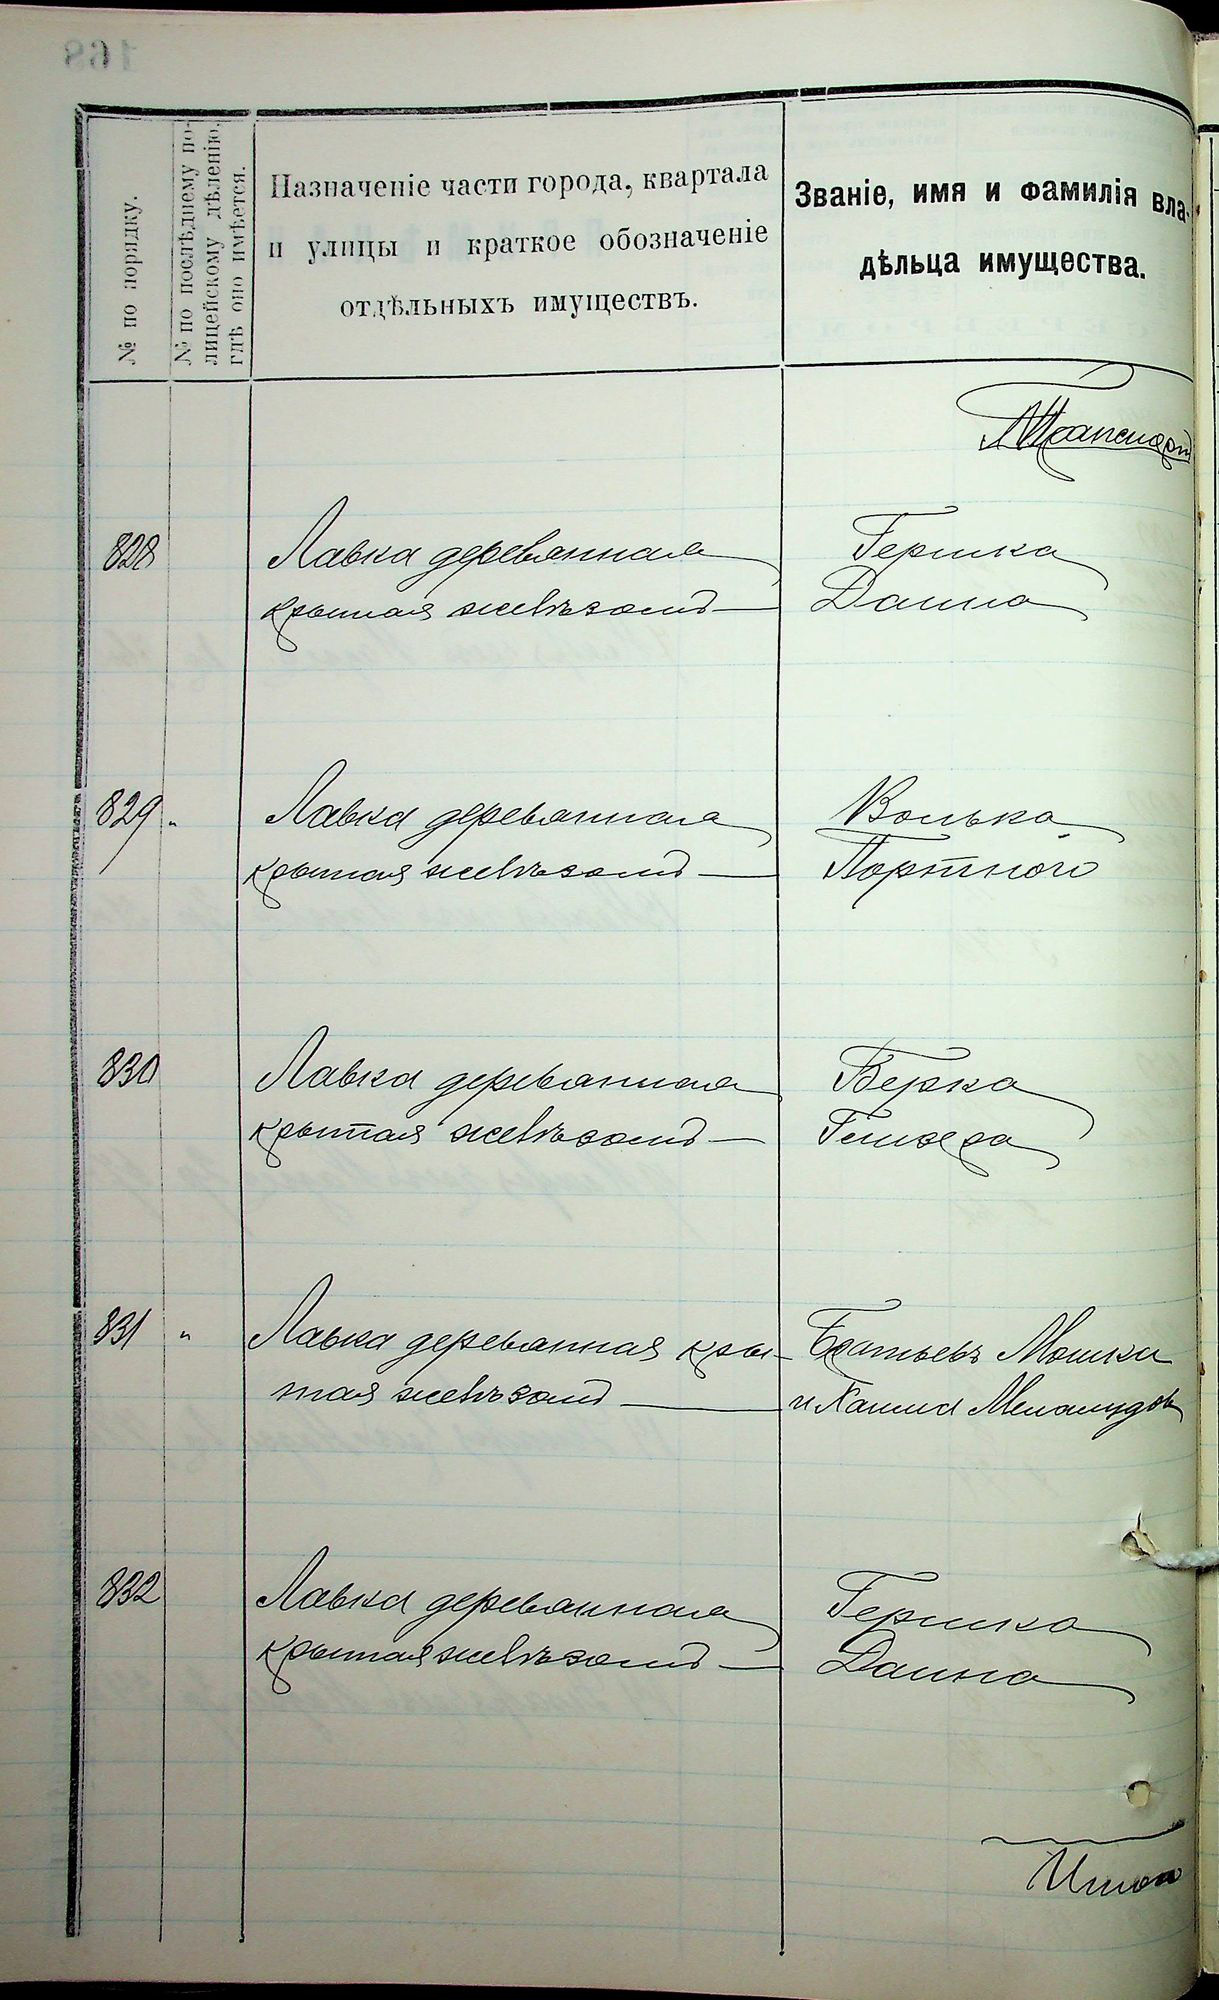 168
№ по порядку.
№ по послѣднему по-
лицейскому дѣленію,
гдѣ оно имѣется.
Назначеніе части города, квартала
и улицы и краткое обозначеніе
отдѣльныхъ имуществъ.
Званіе, имя и фамилія вла-
дѣльца имущества.
Транспорт
828 Лавка деревянная Гершка
крытая желѣзомъ — Даина
829 " Лавка деревянная Волька
крытая желѣзомъ — Портного
830 Лавка деревянная Берка
крытая желѣзомъ —
831 " Лавка деревянная кры- Братьевъ Мошки
тая желѣзомъ — и Хаима Меламудовъ
832 Лавка деревянная Гершка
крытая желѣзомъ — Даина
Итого